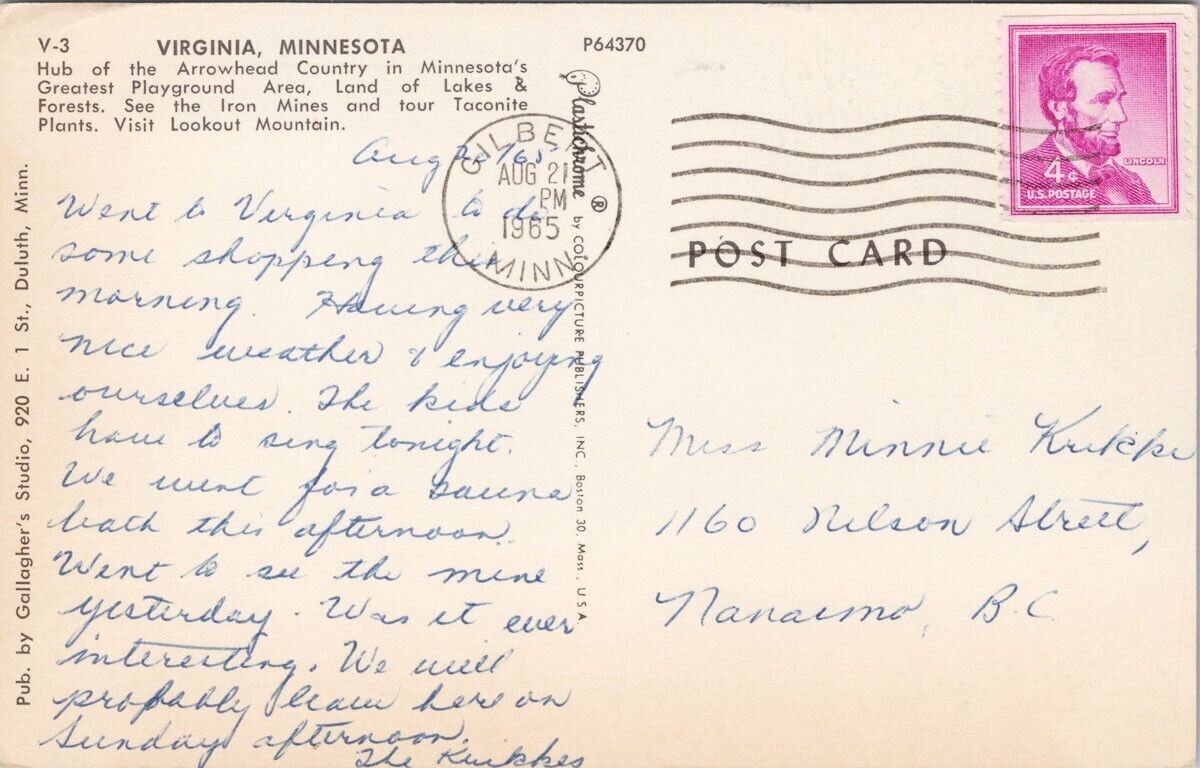 V-3 VIRGINIA, MINNESOTA
Hub of the Arrowhead Country in Minnesota's
Greatest Playground Area, Land of Lakes &
Forests. See the Iron Mines and tour Taconite
Plants. Visit Lookout Mountain.
P64370
Aug 20/65
Went to Virginia to do
some shopping this
morning. Having very
nice weather & enjoying
ourselves. The kids
have to sing tonight.
We went for a sauna
bath this afternoon.
Went to see the mine
yesterday. Was it ever
interesting. We will
probably leave here on
Sunday afternoon.
The Krikkes
Pub. by Gallagher's Studio, 920 E. 1 St., Duluth, Minn.
Plastichrome ® by COLOURPICTURE PUBLISHERS, INC., Boston 30, Mass., U S A
GILBERT
AUG 21
PM
1965
MINN.
LINCOLN
4¢
U.S. POSTAGE
POST CARD
Miss Minnie Krikke
1160 Nelson Street,
Nanaimo, B.C.